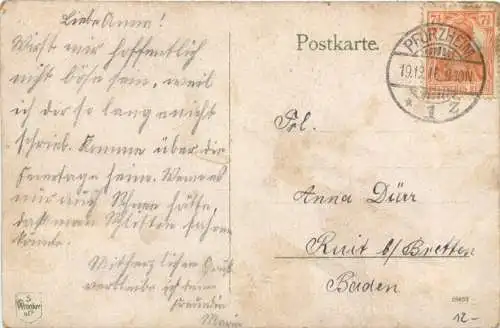 Liebe Anna!
Wirst mir hoffentlich
nicht böse sein, weil
ich dir so lang nicht
schrieb. Komme über die
Feiertage heim. Wenn es
nur auch Schnee hätte,
daß man Schlitten fahren
könnte.
Mit herzlichen Gruß
verbleibe ich deine
Freundin
Marie
Postkarte.
7½ 7½
PFORZHEIM
19.12.16.
* 1 Z
Frl.
Anna Dürr
Ruit b/Bretten
Baden
12-